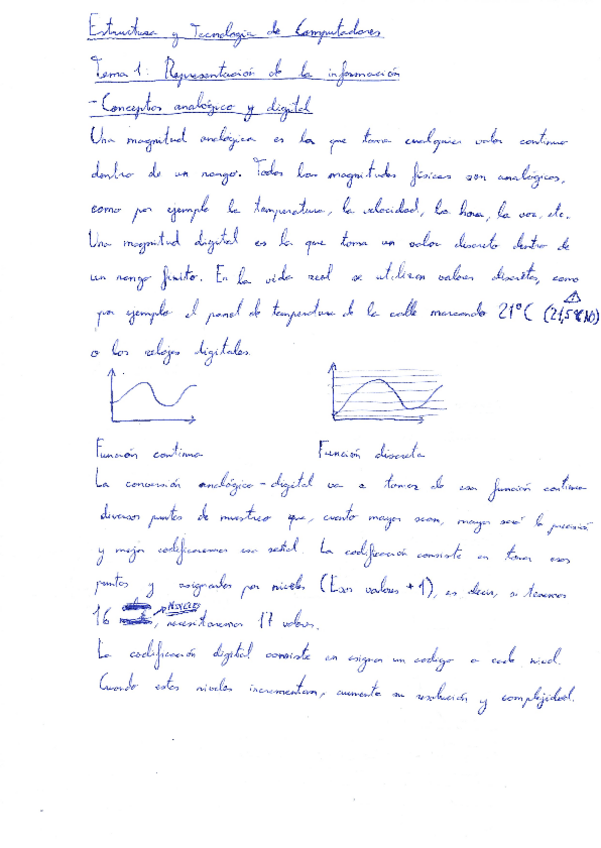 Estructura y Tecnología de Computadores
Tema 1: Representación de la información
- Conceptos analógico y digital
Una magnitud analógica es la que toma cualquier valor continuo
dentro de un rango. Todas las magnitudes físicas son analógicas,
como por ejemplo la temperatura, la velocidad, la hora, la voz, etc.
Una magnitud digital es la que toma un valor discreto dentro de
un rango finito. En la vida real se utilizan valores discretos, como
por ejemplo el panel de temperatura de la calle marcando 21°C (21,5°C NO)
o los relojes digitales.
Función continua
Función discreta
La conversión analógico-digital va a tomar de esa función continua
diversos puntos de muestreo que, cuanto mayor sean, mayor será la precisión
y mejor codificaremos esa señal. La codificación consiste en tomar esos
puntos y asignarlos por niveles (valores + 1), es decir, si tenemos
16 , necesitaremos 17 valores.
La codificación digital consiste en asignar un código a cada nivel.
Cuando estos niveles incrementan, aumenta su resolución y complejidad.